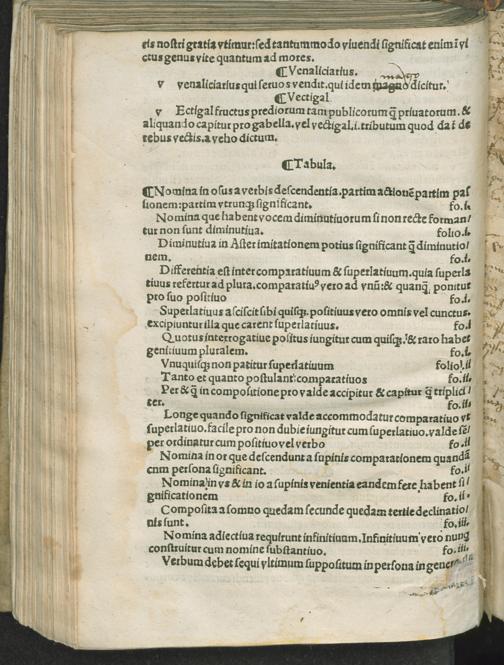 eis nostri gratia vtimur: sed tantummodo viuendi significat enim ī vi
ctus genus vite quantum ad mores.
¶Venaliciarius.
mango
v venaliciarius qui seruos vendit. qui idem magno dicitur.
¶Vectigal
v Ectigal fructus prediorum tam publicorum q̄ priuatorum. &
aliquando capitur pro gabella. vel vectigal .i. tributum quod daĩ de
rebus vectis. a veho dictum.
¶Tabula.
¶Nomina in osus a verbis descendentia. partim actionē partim pas
sionem: partim vtrunq; significant. fo.i.
Nomina que habent vocem diminutiuorum si non recte forman/
tur non sunt diminutiua. folio.i.
Diminutiua in Aster imitationem potius significant q̄ diminutio/
nem. fo.i.
Differentia est inter comparatiuum & superlatiuum. quia superla
tiuus refertur ad plura. comparatiuꝰ vero ad vnū: & quanq̄ ponitur
pro suo positiuo fo.i.
Superlatiuus asciscit sibi quisq;. positiuus vero omnis vel cunctus.
excipiuntur illa que carent superlatiuus. fo.i
Quotus interrogatiue positus iungitur cum quisq;. & raro habet
genitiuum pluralem. fo.i.
Vnuquisq; non patitur superlatiuum folio.ii
Tanto et quanto postulant comparatiuos fo.ii.
Per & q̄ in compositione pro valde accipitur & capitur q̄ triplici/
ter. fo.ii.
Longe quando significat valde accommodatur comparatiuo vt
superlatiuo. facile pro non dubie iungitur cum superlatiuo. valde sē/
per ordinatur cum positiuo vel verbo fo.ii
Nomina in or que descendunt a supinis comparationem quandā
cnm persona significant. fo.ii
Nomina in vs & in io a supinis venientia eandem fere habent si/
gnificationem fo.ii.
Composita a somno quedam secunde quedam tertie declinatio/
nis sunt. fo.iii.
Nomina adiectiua requirunt infinitiuum. Infinitiuum vero nunq
construitur cum nomine substantiuo. fo.iii.
Verbum debet sequi vltimum suppositum in persona in genere